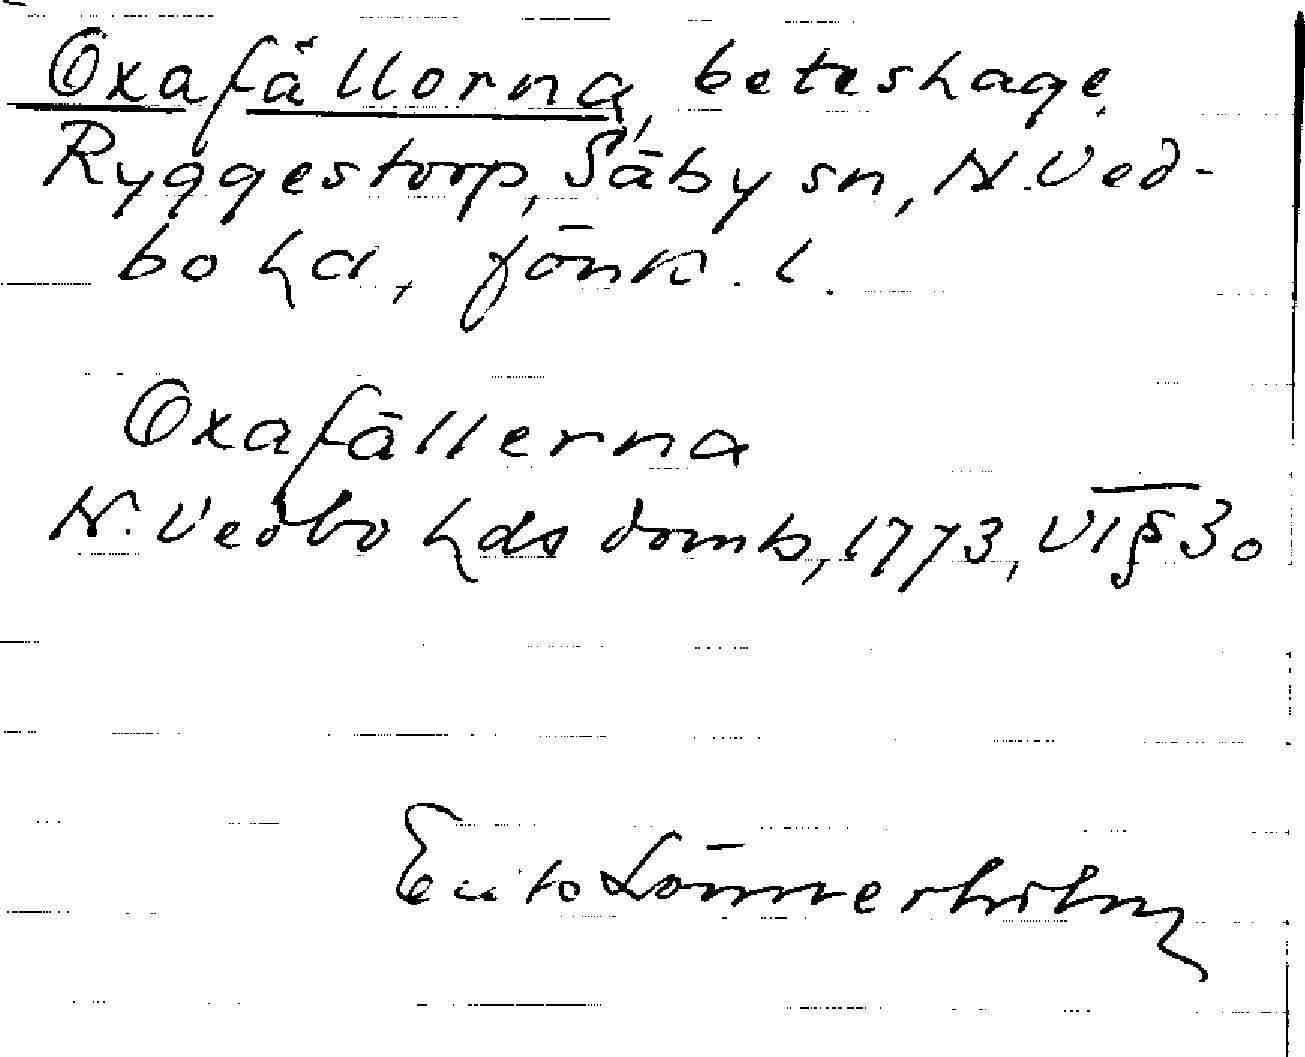 Oxafällorna, beteshage,
Ryggestorp, Säby sn, N. Ved-
bo hd, Jönk. l.
Oxafällerna
N. Vedbo hds domb, 1773, VI § 30
Lönnerholm